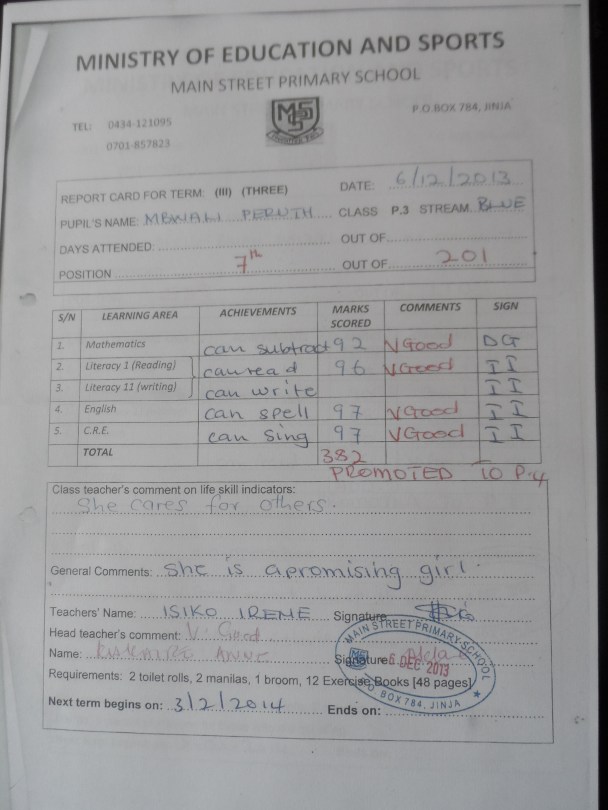 MINISTRY OF EDUCATION AND SPORTS
MAIN STREET PRIMARY SCHOOL
TEL: 0434-121095
0701-857823
MSPS
P.O.BOX 784, JINJA
REPORT CARD FOR TERM: (III) (THREE) DATE: 6/12/2013
PUPIL'S NAME: MBWALI PERUTH CLASS P.3 STREAM BLUE
DAYS ATTENDED: OUT OF
POSITION 7th OUT OF 201
S/N LEARNING AREA ACHIEVEMENTS MARKS SCORED COMMENTS SIGN
1. Mathematics can subtract 92 VGood DG
2. Literacy 1 (Reading) can read 96 VGood II
3. Literacy 11 (writing) can write II
4. English can spell 97 VGood II
5. C.R.E. can sing 97 VGood II
TOTAL 382
PROMOTED TO P.4
Class teacher's comment on life skill indicators:
She cares for others.
General Comments: She is a promising girl.
Teachers' Name: ISIKO IRENE Signature
Head teacher's comment: V. Good
Name: ANNE Signature
Requirements: 2 toilet rolls, 2 manilas, 1 broom, 12 Exercise Books [48 pages]
Next term begins on: 3/2/2014 Ends on:
MAIN STREET PRIMARY SCHOOL
6 DEC 2013
P.O. BOX 784, JINJA